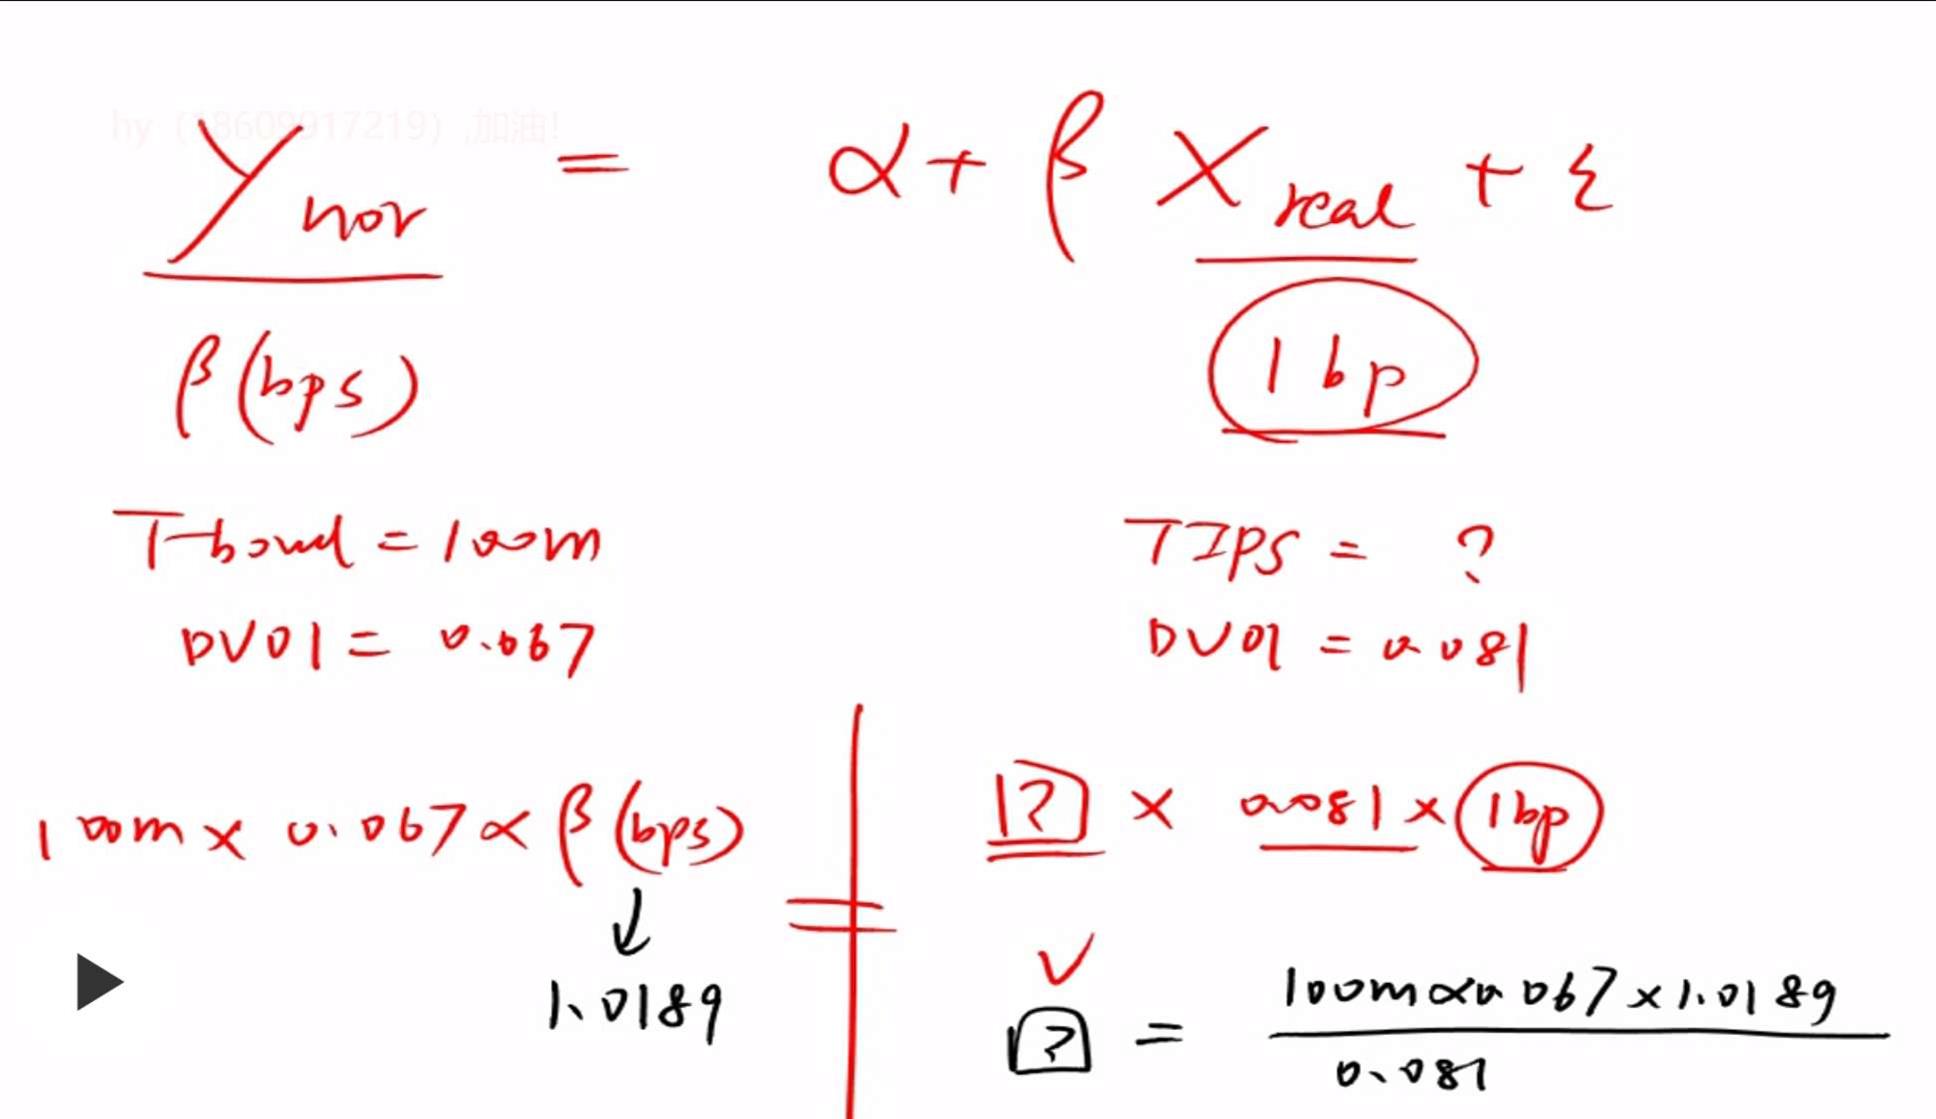 hy（18609917219）,加油!
Y nor = α + β X real + ε
β (bps) 1 bp
T-bond = 100m TIPS = ?
DV01 = 0.067 DV01 = 0.081
100m × 0.067 × β (bps) = ? × 0.081 × 1bp
↓ ✓
1.0189 ? = 100m × 0.067 × 1.0189
0.081